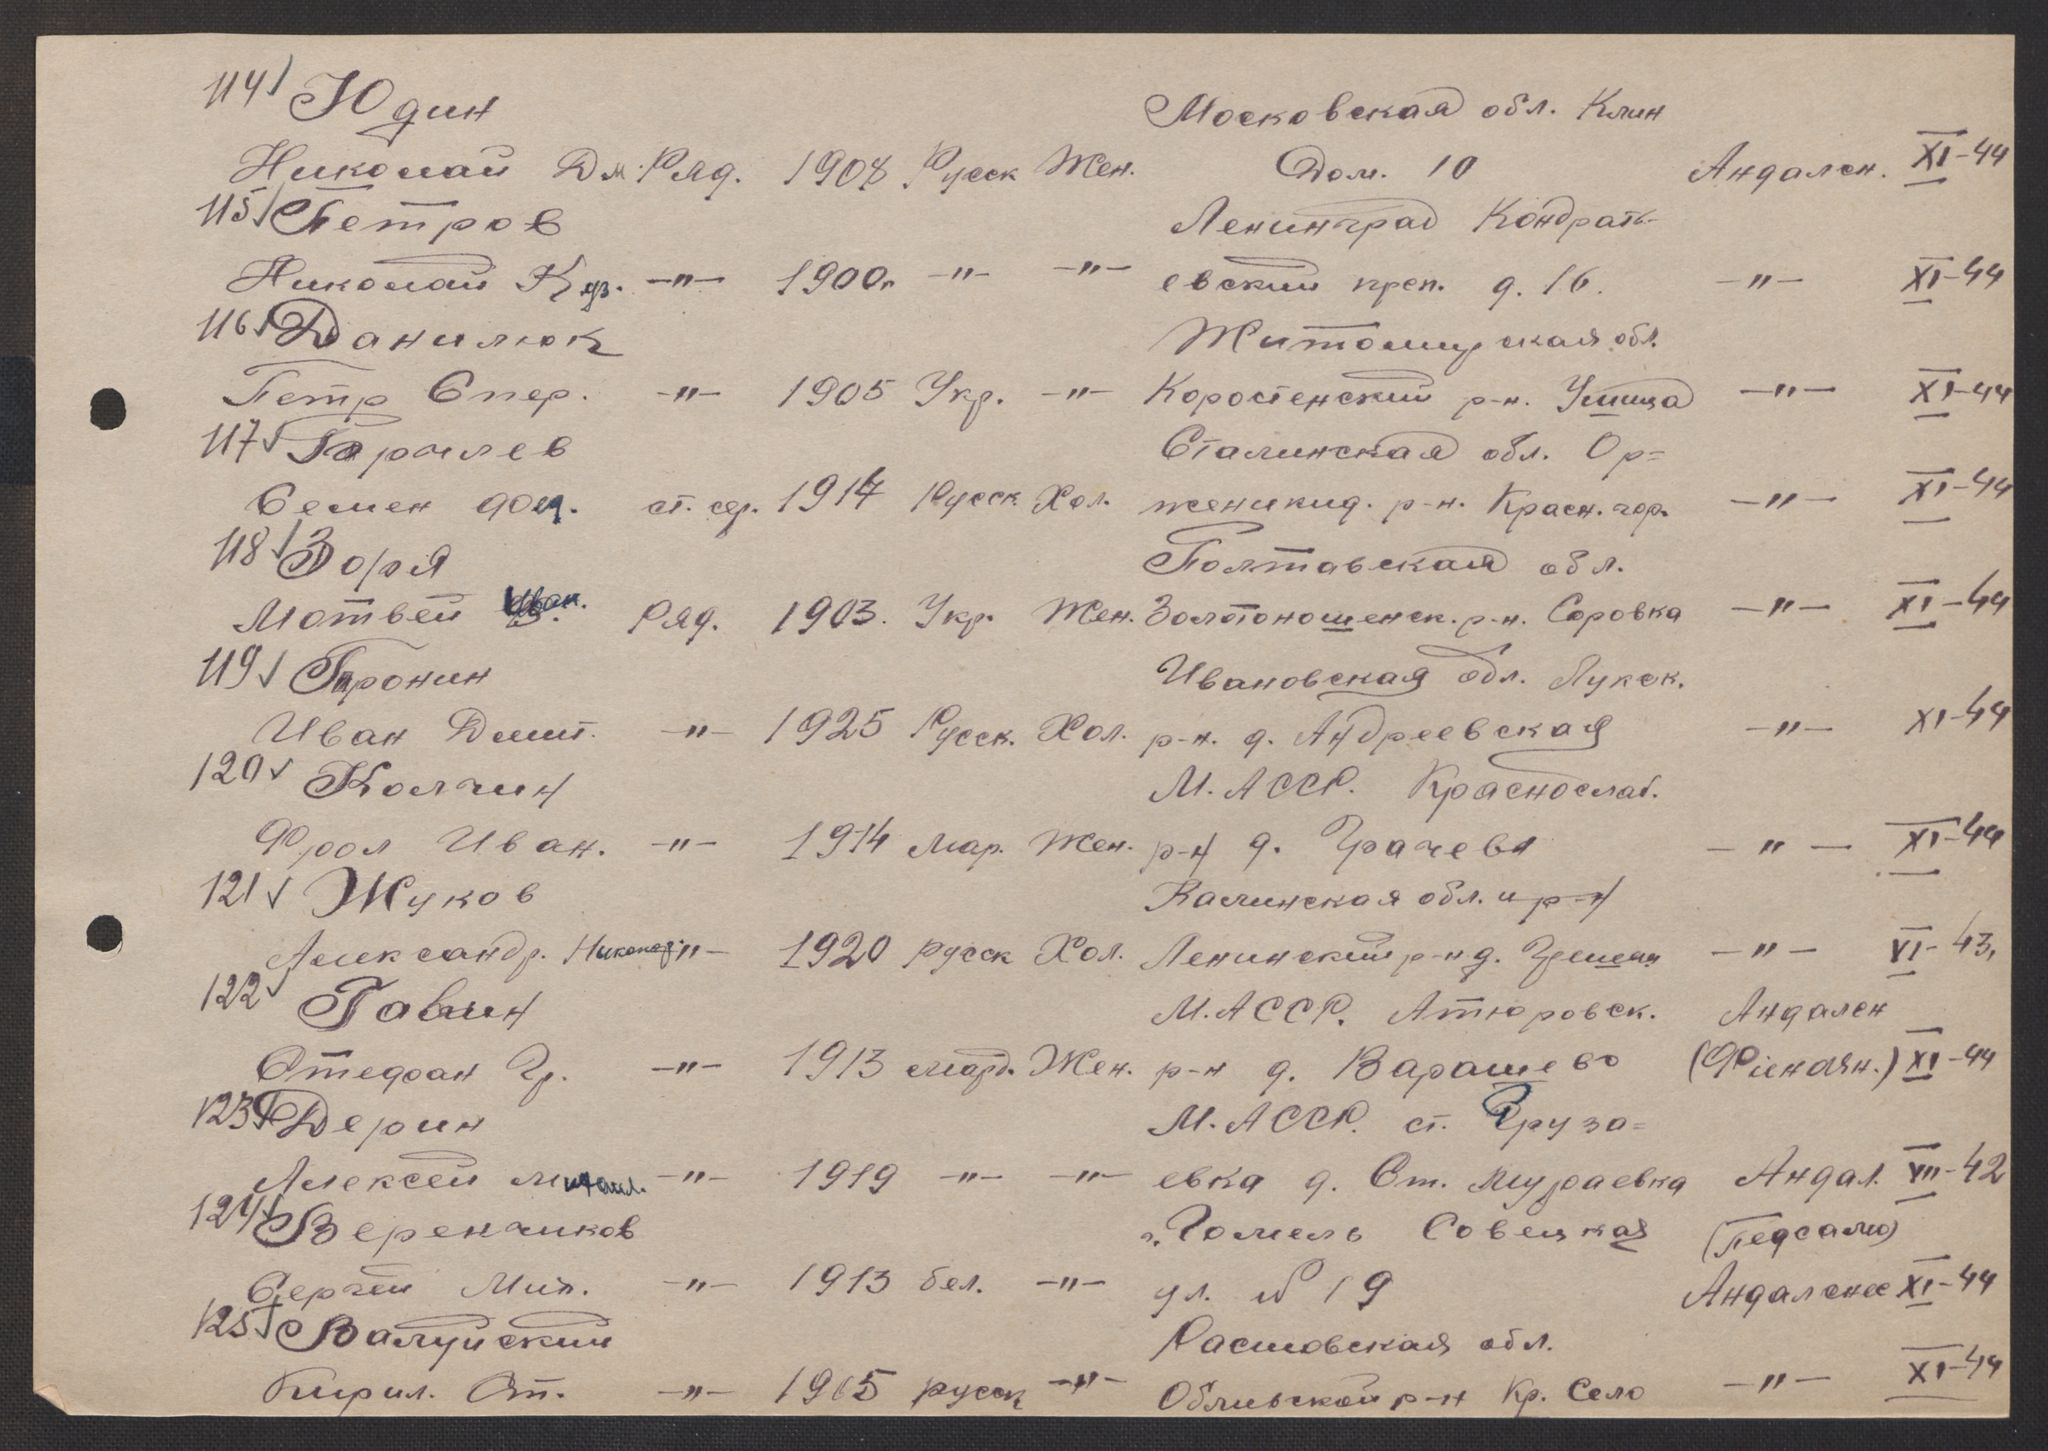 114 Юдин Московская обл. Клин
Николай Дм. Ряд. 1908 Русск Жен. Дом. 10 Андален. XI-44
115 Петров Ленинград Кондрать-
Николай Куз. -"- 1900г -"- -"- евский преп. д. 16. -"- XI-44
116 Данилюк Житомирская обл.
Петр Спер. -"- 1905 Укр. -"- Коростенский р-н. -"- XI-44
117 Сталинская обл. Ор=
Семен ст. сер. 1914 Русск Хол. женикид. р-н. Красн. гор. -"- XI-44
118 Зоря Полтавская обл.
Мотвей Иван. Ряд. 1903. Укр. Жен. Золотоношенск. р-н. Соровка -"- XI-44
119 Ивановская обл. Лукск.
Иван Дмит. -"- 1925 Русск. Хол. р-н. д. Андреевская -"- XI-44
120 Колчин М. АССР. Краснослаб.
Фрол Иван. -"- 1914 мар. Жен. р-н д. Грачева -"- XI-44
121 Жуков Калинская обл. и р-н
Александр. Никонор. -"- 1920 русск Хол. Ленинский р-н д. -"- VI-43,
122 М. АССР. Атюровск. Андален
Стефан Гр. -"- 1913 морд. Жен. р-н д. Варашево XI-44
123 Дерин М. АССР. ст. Груза=
Алексей Михаил. -"- 1919 -"- -"- евка д. Ст. Мураевка Андал. VII-42
124 Веренчиков г. Гомель Совецкая (Педсамо)
Сергей Мих. -"- 1913 бел. -"- ул. № 19 Андалснес XI-44
125 Валуйский Растовская обл.
Кирил. Ст. -"- 1905 русск -"- Обливской р-н Кр. Село -"- XI-44